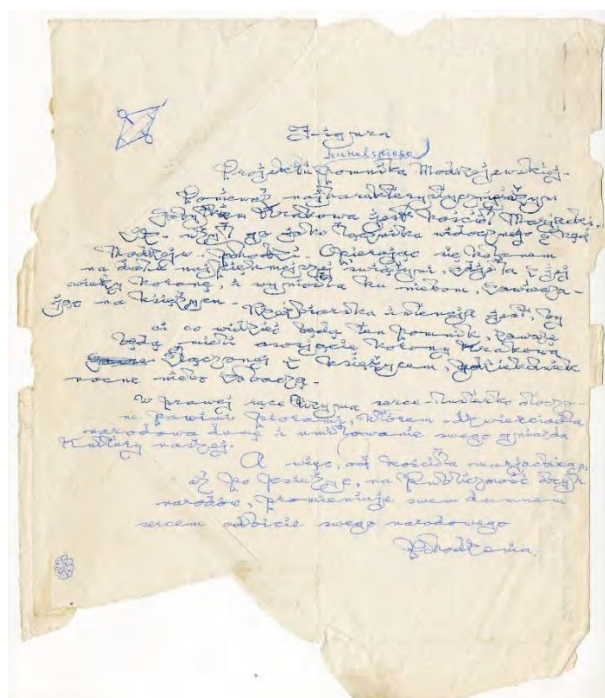 Figura
Szukalskiego
Projektu pomnika Modrzejewskiej.
Ponieważ najcharakterystyczniejszym
Krakowa jest Kościół Marjacki,
go jako łącznika widocznego z
Modrzejew. Opierając się kolanem
na dachu najpiękniejszej świątyni, zdjęła z jej
wieży koronę, i wyniosła ku niebom, zawiesza-
jąc na księżycu. Rzeźbiarska intencja jest, by
ci co widzieć będą ten pomnik, zawsze
będą mieli asocjację korony Krakowa
złączonej z księżycem, gdziekolwiek
nocne niebo zobaczą.
W prawej ręce trzyma serce-lusterko otoczo-
ne pawimi piórami, którem odzwierciadla
narodową dumę i umiłowanie swego gniazda
Kultury naszej.
A więc, od kościoła marjackiego,
aż po księżyc, na Publiczność obcych
narodów, promieniuje swem dumnem
sercem odbicie swego narodowego
Pochodzenia.